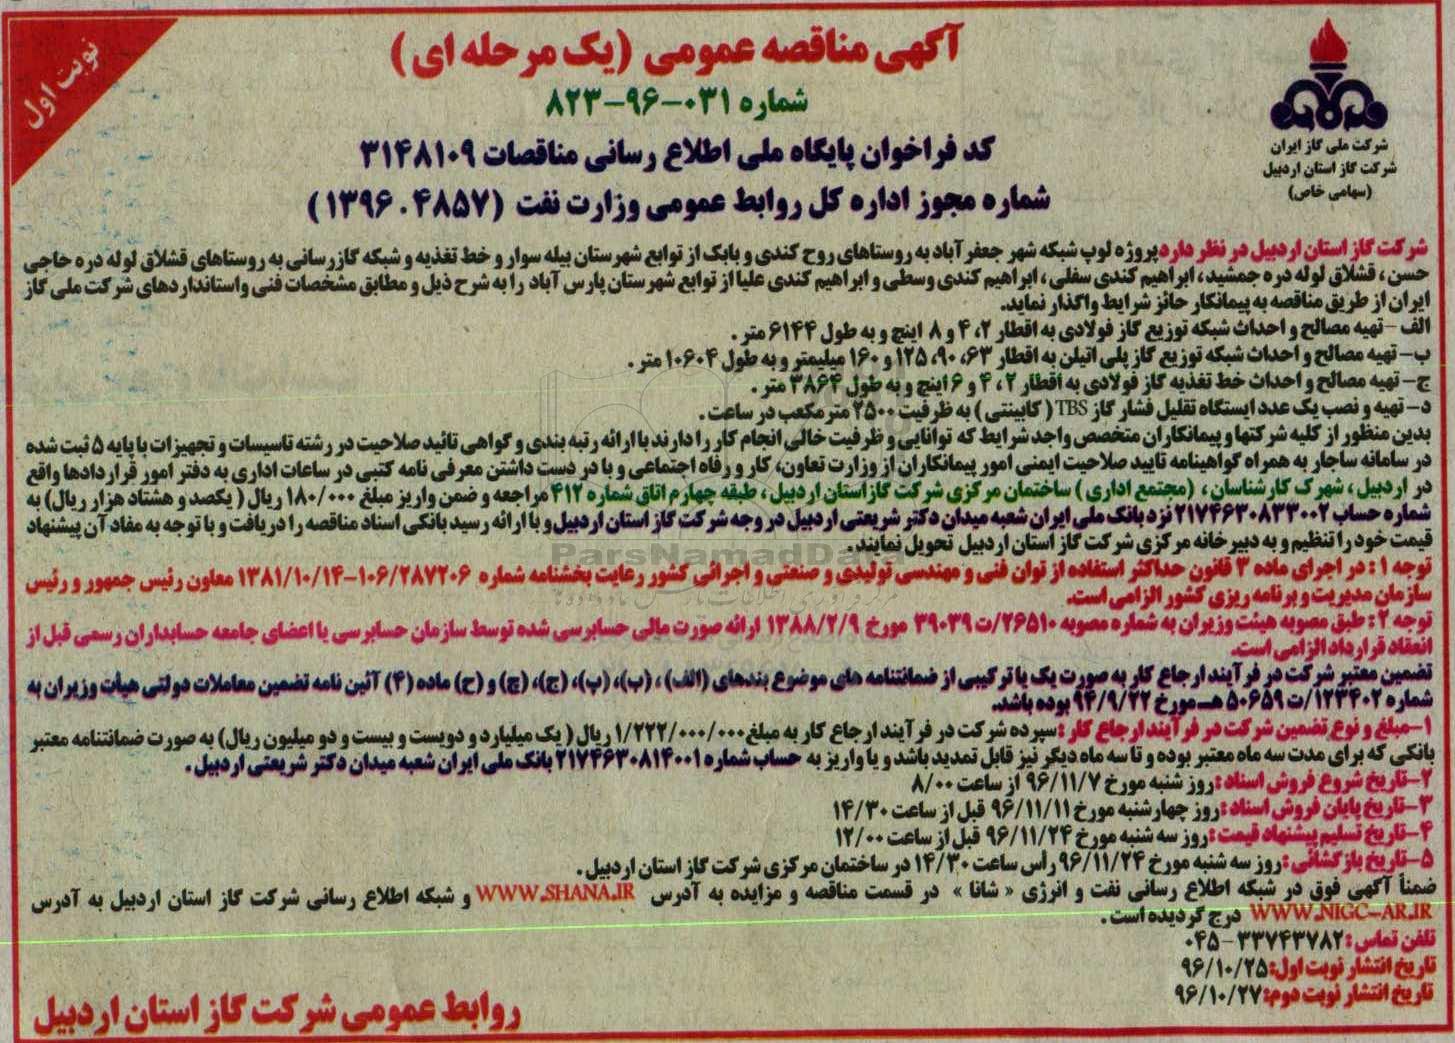 نوبت اول
آگهی مناقصه عمومی (یک مرحله ای)
شماره ۰۳۱-۹۶-۸۲۳
کد فراخوان پایگاه ملی اطلاع رسانی مناقصات ۳۱۴۸۱۰۹
شماره مجوز اداره کل روابط عمومی وزارت نفت (۱۳۹۶.۴۸۵۷)
شرکت ملی گاز ایران
شرکت گاز استان اردبیل
(سهامی خاص)
شرکت گاز استان اردبیل در نظر دارد پروژه لوپ شبکه شهر جعفر آباد به روستاهای روح کندی و بابک از توابع شهرستان بیله سوار و خط تغذیه و شبکه گازرسانی به روستاهای قشلاق لوله دره حاجی
حسن، قشلاق لوله دره جمشید، ابراهیم کندی سفلی، ابراهیم کندی وسطی و ابراهیم کندی علیا از توابع شهرستان پارس آباد را به شرح ذیل و مطابق مشخصات فنی و استانداردهای شرکت ملی گاز
ایران از طریق مناقصه به پیمانکار حائز شرایط واگذار نماید.
الف - تهیه مصالح و احداث شبکه توزیع گاز فولادی به اقطار ۲، ۴ و ۸ اینچ و به طول ۶۱۴۴ متر.
ب- تهیه مصالح و احداث شبکه توزیع گاز پلی اتیلن به اقطار ۶۳، ۹۰، ۱۲۵ و ۱۶۰ میلیمتر و به طول ۱۰۶۰۴ متر.
ج- تهیه مصالح و احداث خط تغذیه گاز فولادی به اقطار ۲، ۴ و ۶ اینچ و به طول ۳۸۶۴ متر.
د- تهیه و نصب یک عدد ایستگاه تقلیل فشار گاز TBS (کابینتی) به ظرفیت ۲۵۰۰ متر مکعب در ساعت.
بدین منظور از کلیه شرکتها و پیمانکاران متخصص واجد شرایط که توانایی و ظرفیت خالی انجام کار را دارند با ارائه رتبه بندی و گواهی تائید صلاحیت در رشته تاسیسات و تجهیزات با پایه ۵ ثبت شده
در سامانه ساجار به همراه گواهینامه تایید صلاحیت ایمنی امور پیمانکاران از وزارت تعاون، کار و رفاه اجتماعی و با در دست داشتن معرفی نامه کتبی در ساعات اداری به دفتر امور قراردادها واقع
در اردبیل، شهرک کارشناسان، (مجتمع اداری) ساختمان مرکزی شرکت گاز استان اردبیل، طبقه چهارم اتاق شماره ۴۱۲ مراجعه و ضمن واریز مبلغ ۱۸۰/۰۰۰ ریال (یکصد و هشتاد هزار ریال) به
شماره حساب ۲۱۷۴۶۳۰۸۳۳۰۰۲ نزد بانک ملی ایران شعبه میدان دکتر شریعتی اردبیل در وجه شرکت گاز استان اردبیل و با ارائه رسید بانکی اسناد مناقصه را دریافت و با توجه به مفاد آن پیشنهاد
قیمت خود را تنظیم و به دبیرخانه مرکزی شرکت گاز استان اردبیل تحویل نمایند.
توجه ۱: در اجرای ماده ۳ قانون حداکثر استفاده از توان فنی و مهندسی تولیدی و صنعتی و اجرائی کشور رعایت بخشنامه شماره ۱۰۶/۲۸۷۲۰۶-۱۳۸۱/۱۰/۱۴ معاون رئیس جمهور و رئیس
سازمان مدیریت و برنامه ریزی کشور الزامی است.
توجه ۲: طبق مصوبه هیئت وزیران به شماره مصوبه ۲۶۵۱۰/ت ۳۹۰۳۹ مورخ ۱۳۸۸/۲/۹ ارائه صورت مالی حسابرسی شده توسط سازمان حسابرسی یا اعضای جامعه حسابداران رسمی قبل از
انعقاد قرارداد الزامی است.
تضمین معتبر شرکت در فرآیند ارجاع کار به صورت یک یا ترکیبی از ضمانتنامه های موضوع بندهای (الف)، (ب)، (پ)، (ج)، (چ) و (ح) ماده (۴) آئین نامه تضمین معاملات دولتی هیأت وزیران به
شماره ۱۲۳۴۰۲/ت ۵۰۶۵۹ هـ مورخ ۹۴/۹/۲۲ بوده باشد.
۱-مبلغ و نوع تضمین شرکت در فرآیند ارجاع کار: سپرده شرکت در فرآیند ارجاع کار به مبلغ ۱/۲۲۲/۰۰۰/۰۰۰ ریال (یک میلیارد و دویست و بیست و دو میلیون ریال) به صورت ضمانتنامه معتبر
بانکی که برای مدت سه ماه معتبر بوده و تا سه ماه دیگر نیز قابل تمدید باشد و یا واریز به حساب شماره ۲۱۷۴۶۳۰۸۱۴۰۰۱ بانک ملی ایران شعبه میدان دکتر شریعتی اردبیل.
۲-تاریخ شروع فروش اسناد: روز شنبه مورخ ۹۶/۱۱/۷ از ساعت ۸/۰۰
۳-تاریخ پایان فروش اسناد: روز چهارشنبه مورخ ۹۶/۱۱/۱۱ قبل از ساعت ۱۴/۳۰
۴-تاریخ تسلیم پیشنهاد قیمت: روز سه شنبه مورخ ۹۶/۱۱/۲۴ قبل از ساعت ۱۲/۰۰
۵-تاریخ بازگشائی: روز سه شنبه مورخ ۹۶/۱۱/۲۴ رأس ساعت ۱۴/۳۰ در ساختمان مرکزی شرکت گاز استان اردبیل.
ضمناً آگهی فوق در شبکه اطلاع رسانی نفت و انرژی « شانا » در قسمت مناقصه و مزایده به آدرس WWW.SHANA.IR و شبکه اطلاع رسانی شرکت گاز استان اردبیل به آدرس
WWW.NIGC-AR.IR درج گردیده است.
تلفن تماس: ۳۳۷۴۳۷۸۲-۰۴۵
تاریخ انتشار نوبت اول: ۹۶/۱۰/۲۵
تاریخ انتشار نوبت دوم: ۹۶/۱۰/۲۷
روابط عمومی شرکت گاز استان اردبیل
ParsNamadData